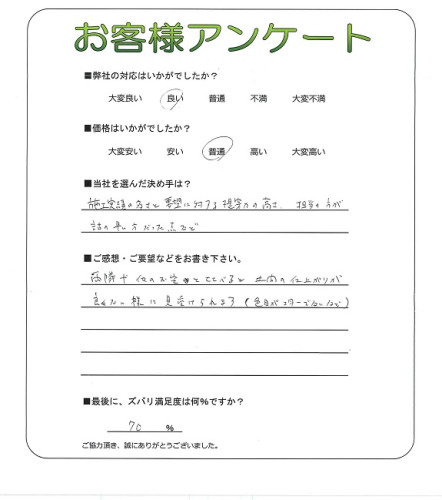 お客様アンケート
■弊社の対応はいかがでしたか？
大変良い 良い 普通 不満 大変不満
■価格はいかがでしたか？
大変安い 安い 普通 高い 大変高い
■当社を選んだ決め手は？
施工実績の多さと要望に対する提案力の高さ、担当の方が
話の早い方だった点など
■ご感想・ご要望などをお書き下さい。
近隣 他のお宅と比べると 面の仕上がりが
良くない様に見受けられます(色目が
■最後に、ズバリ満足度は何％ですか？
70 ％
ご協力頂き、誠にありがとうございました。